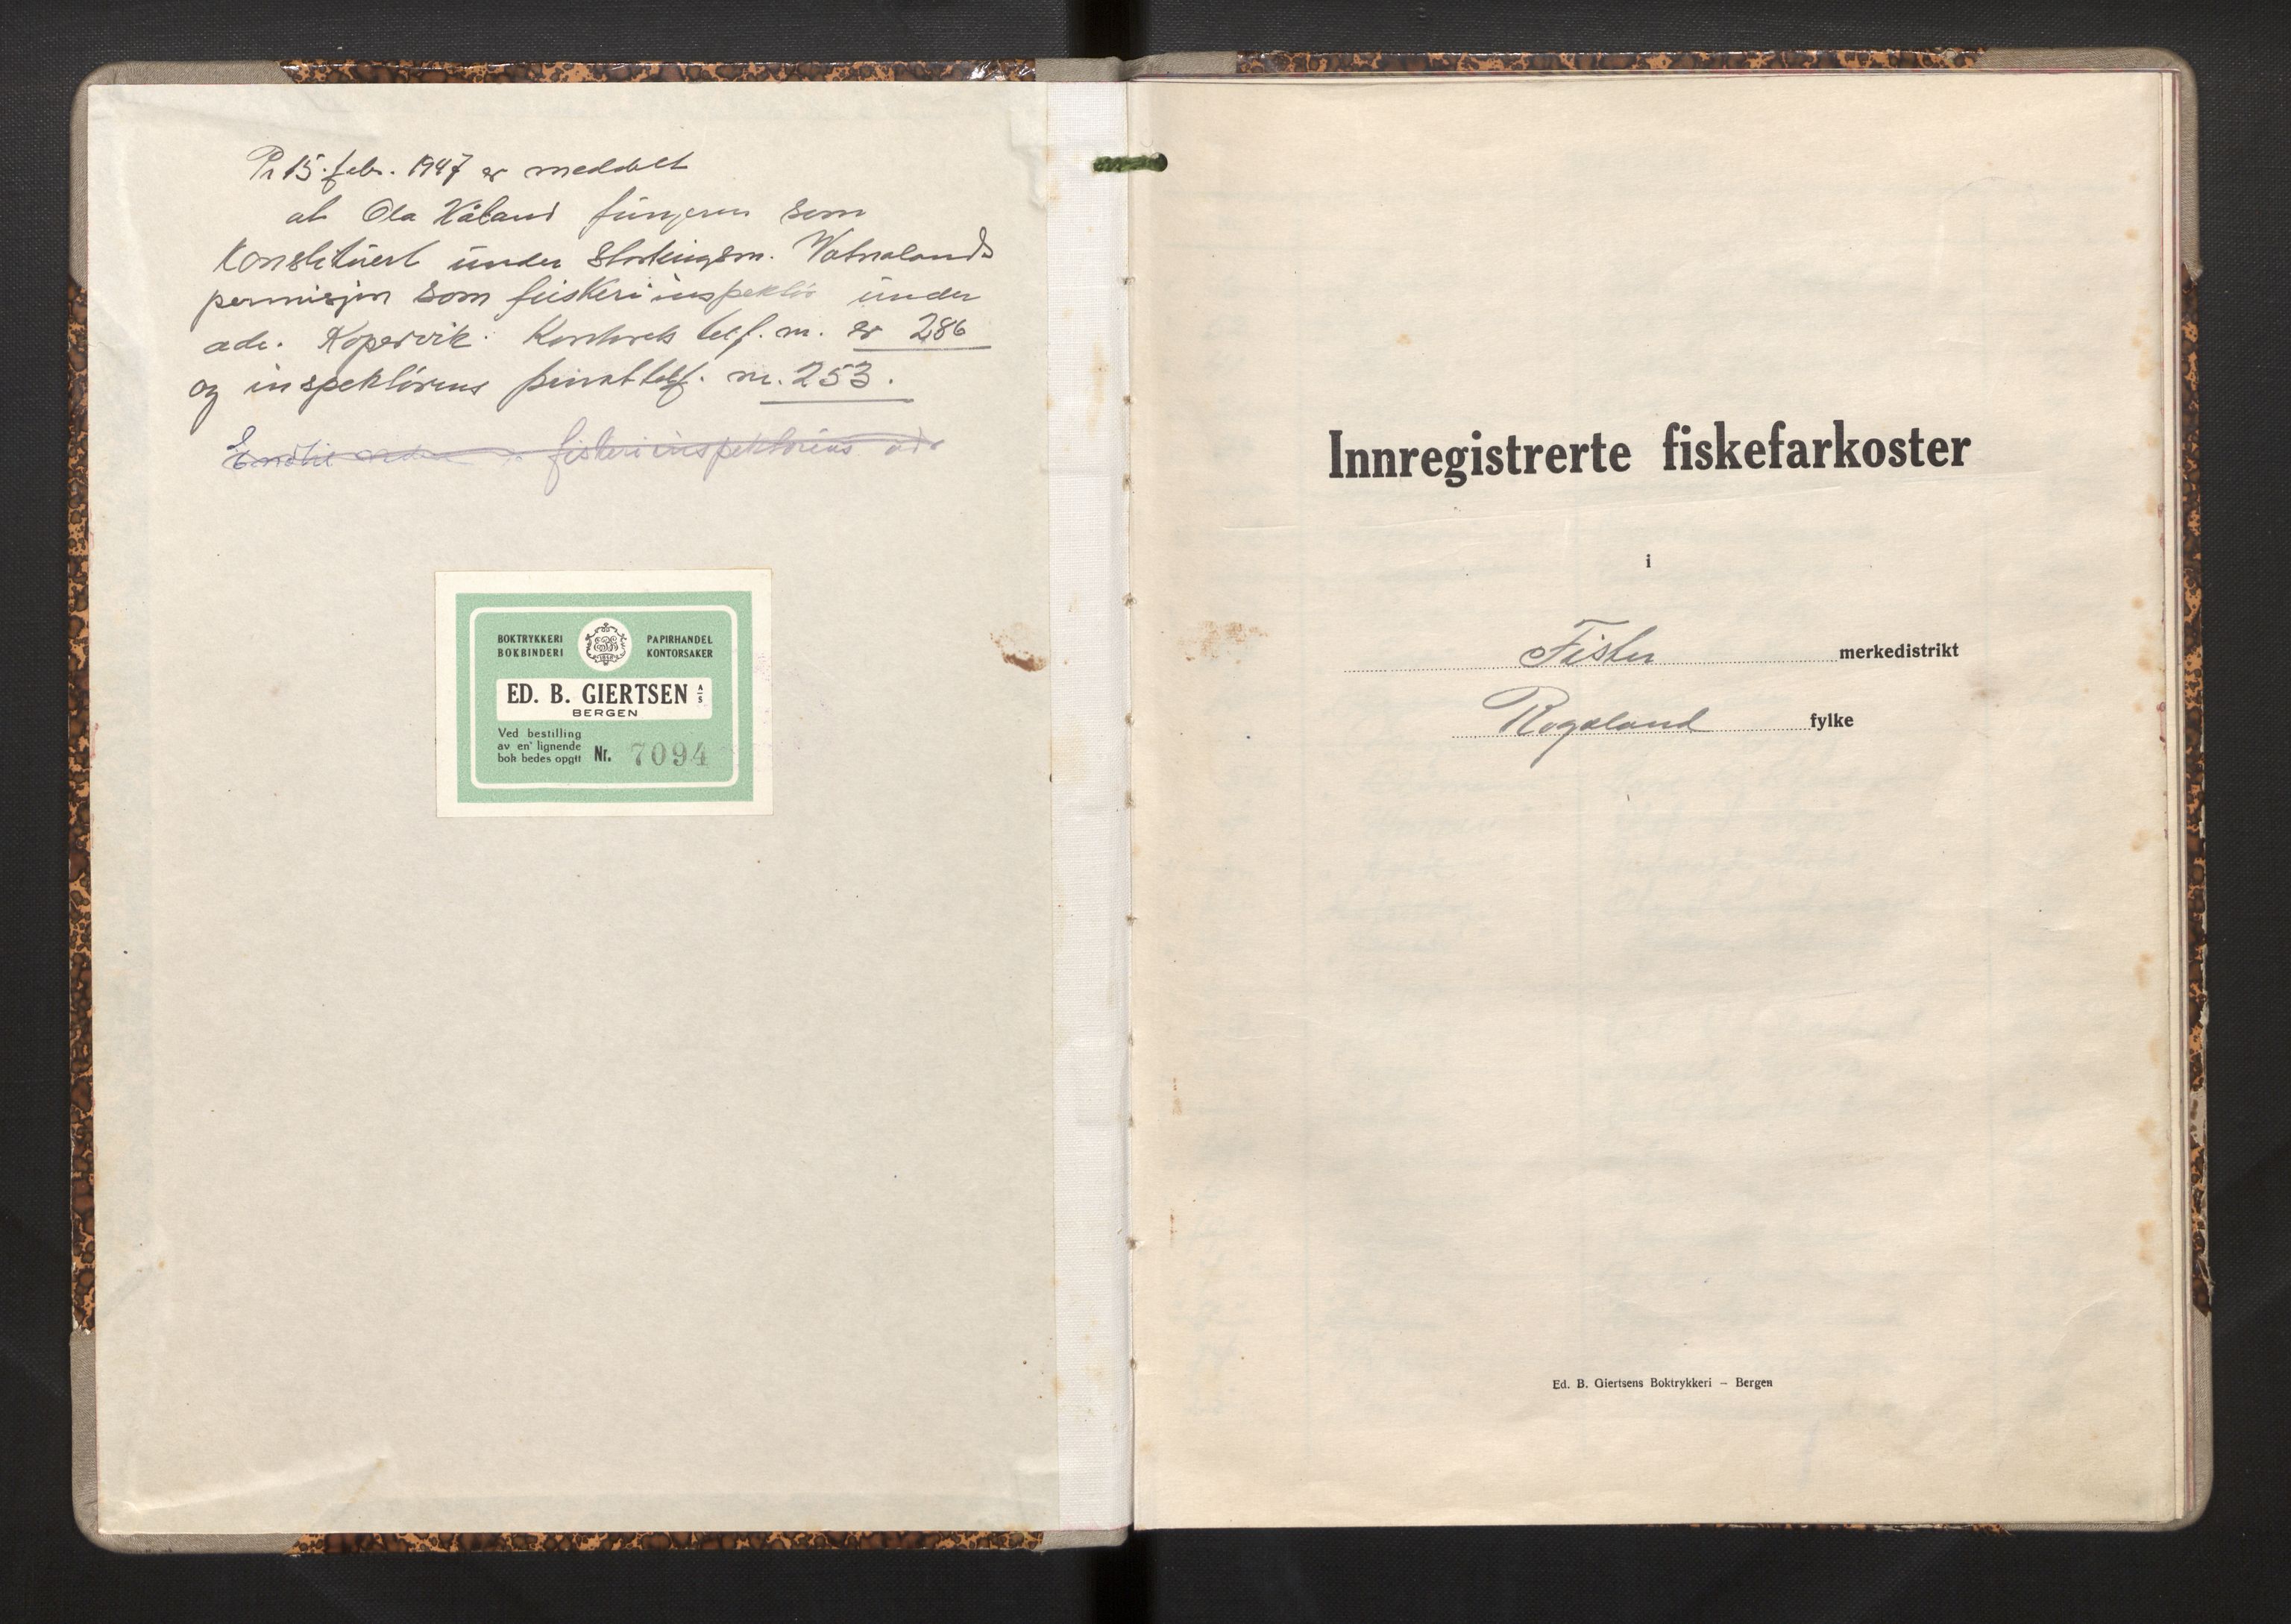 Pr 15. feb. 1947 er meddelt
at Ola Kåland fungerer som
Konstituert under Stortingsm. Vatnalands
permisjon som fiskeriinspektør under
adr. Kopervik. Kontorets telf. nr. er 286
og inspektørens privattelf. nr. 253.
fiskeriinspektørens adr
BOKTRYKKERI
BOKBINDERI
PAPIRHANDEL
KONTORSAKER
ED. B. GIERTSEN A/S
BERGEN
Ved bestilling
av en lignende
bok bedes opgitt Nr. 7094
Innregistrerte fiskefarkoster
i
Fister merkedistrikt
Rogaland fylke
Ed. B. Giertsens Boktrykkeri – Bergen